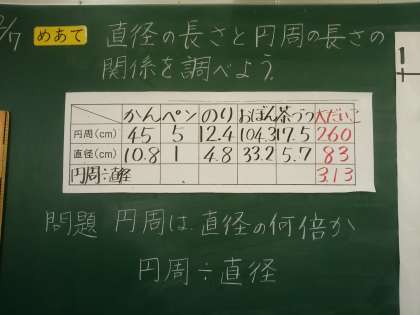 2/7 めあて 直径の長さと円周の長さの
関係を調べよう。
かん ペン のり おぼん 茶づつ 大だいこ
円周(cm) 45 5 12.4 104.3 17.5 260
直径(cm) 10.8 1 4.8 33.2 5.7 83
円周÷直径 3.13
問題 円周は直径の何倍か
円周÷直径